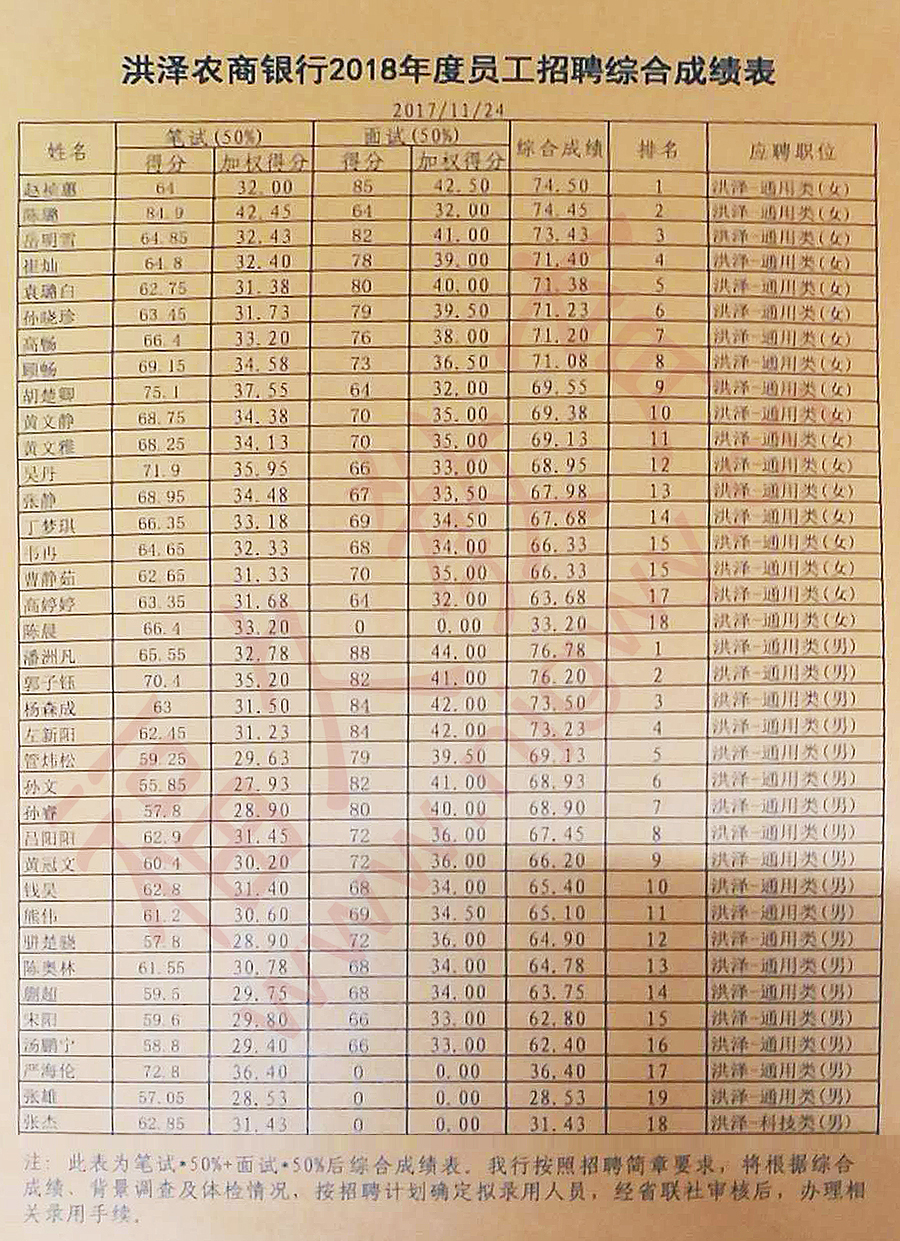 洪泽农商银行2018年度员工招聘综合成绩表
2017/11/24
姓名 笔试(50%) 面试(50%) 综合成绩 排名 应聘职位
得分 加权得分 得分 加权得分
赵桢蕙 64 32.00 85 42.50 74.50 1 洪泽-通用类(女)
陈璐 84.9 42.45 64 32.00 74.45 2 洪泽-通用类(女)
岳明雪 64.85 32.43 82 41.00 73.43 3 洪泽-通用类(女)
崔灿 64.8 32.40 78 39.00 71.40 4 洪泽-通用类(女)
袁璐白 62.75 31.38 80 40.00 71.38 5 洪泽-通用类(女)
孙晓珍 63.45 31.73 79 39.50 71.23 6 洪泽-通用类(女)
高畅 66.4 33.20 76 38.00 71.20 7 洪泽-通用类(女)
顾畅 69.15 34.58 73 36.50 71.08 8 洪泽-通用类(女)
胡楚卿 75.1 37.55 64 32.00 69.55 9 洪泽-通用类(女)
黄文静 68.75 34.38 70 35.00 69.38 10 洪泽-通用类(女)
黄文雅 68.25 34.13 70 35.00 69.13 11 洪泽-通用类(女)
吴丹 71.9 35.95 66 33.00 68.95 12 洪泽-通用类(女)
张静 68.95 34.48 67 33.50 67.98 13 洪泽-通用类(女)
丁梦琪 66.35 33.18 69 34.50 67.68 14 洪泽-通用类(女)
韦冉 64.65 32.33 68 34.00 66.33 15 洪泽-通用类(女)
曹静茹 62.65 31.33 70 35.00 66.33 15 洪泽-通用类(女)
高婷婷 63.35 31.68 64 32.00 63.68 17 洪泽-通用类(女)
陈晨 66.4 33.20 0 0.00 33.20 18 洪泽-通用类(女)
潘洲凡 65.55 32.78 88 44.00 76.78 1 洪泽-通用类(男)
郭子钰 70.4 35.20 82 41.00 76.20 2 洪泽-通用类(男)
杨森成 63 31.50 84 42.00 73.50 3 洪泽-通用类(男)
左新阳 62.45 31.23 84 42.00 73.23 4 洪泽-通用类(男)
管炜松 59.25 29.63 79 39.50 69.13 5 洪泽-通用类(男)
孙文 55.85 27.93 82 41.00 68.93 6 洪泽-通用类(男)
孙睿 57.8 28.90 80 40.00 68.90 7 洪泽-通用类(男)
吕阳阳 62.9 31.45 72 36.00 67.45 8 洪泽-通用类(男)
黄冠文 60.4 30.20 72 36.00 66.20 9 洪泽-通用类(男)
钱昊 62.8 31.40 68 34.00 65.40 10 洪泽-通用类(男)
熊伟 61.2 30.60 69 34.50 65.10 11 洪泽-通用类(男)
楚骁 57.8 28.90 72 36.00 64.90 12 洪泽-通用类(男)
陈奥林 61.55 30.78 68 34.00 64.78 13 洪泽-通用类(男)
超 59.5 29.75 68 34.00 63.75 14 洪泽-通用类(男)
宋阳 59.6 29.80 66 33.00 62.80 15 洪泽-通用类(男)
汤鹏宁 58.8 29.40 66 33.00 62.40 16 洪泽-通用类(男)
严海伦 72.8 36.40 0 0.00 36.40 17 洪泽-通用类(男)
张雄 57.05 28.53 0 0.00 28.53 19 洪泽-通用类(男)
张杰 62.85 31.43 0 0.00 31.43 18 洪泽-科技类(男)
注: 此表为笔试*50%+面试*50%后综合成绩表。我行按照招聘简章要求,将根据综合
成绩、背景调查及体检情况,按招聘计划确定拟录用人员,经省联社审核后,办理相
关录用手续。